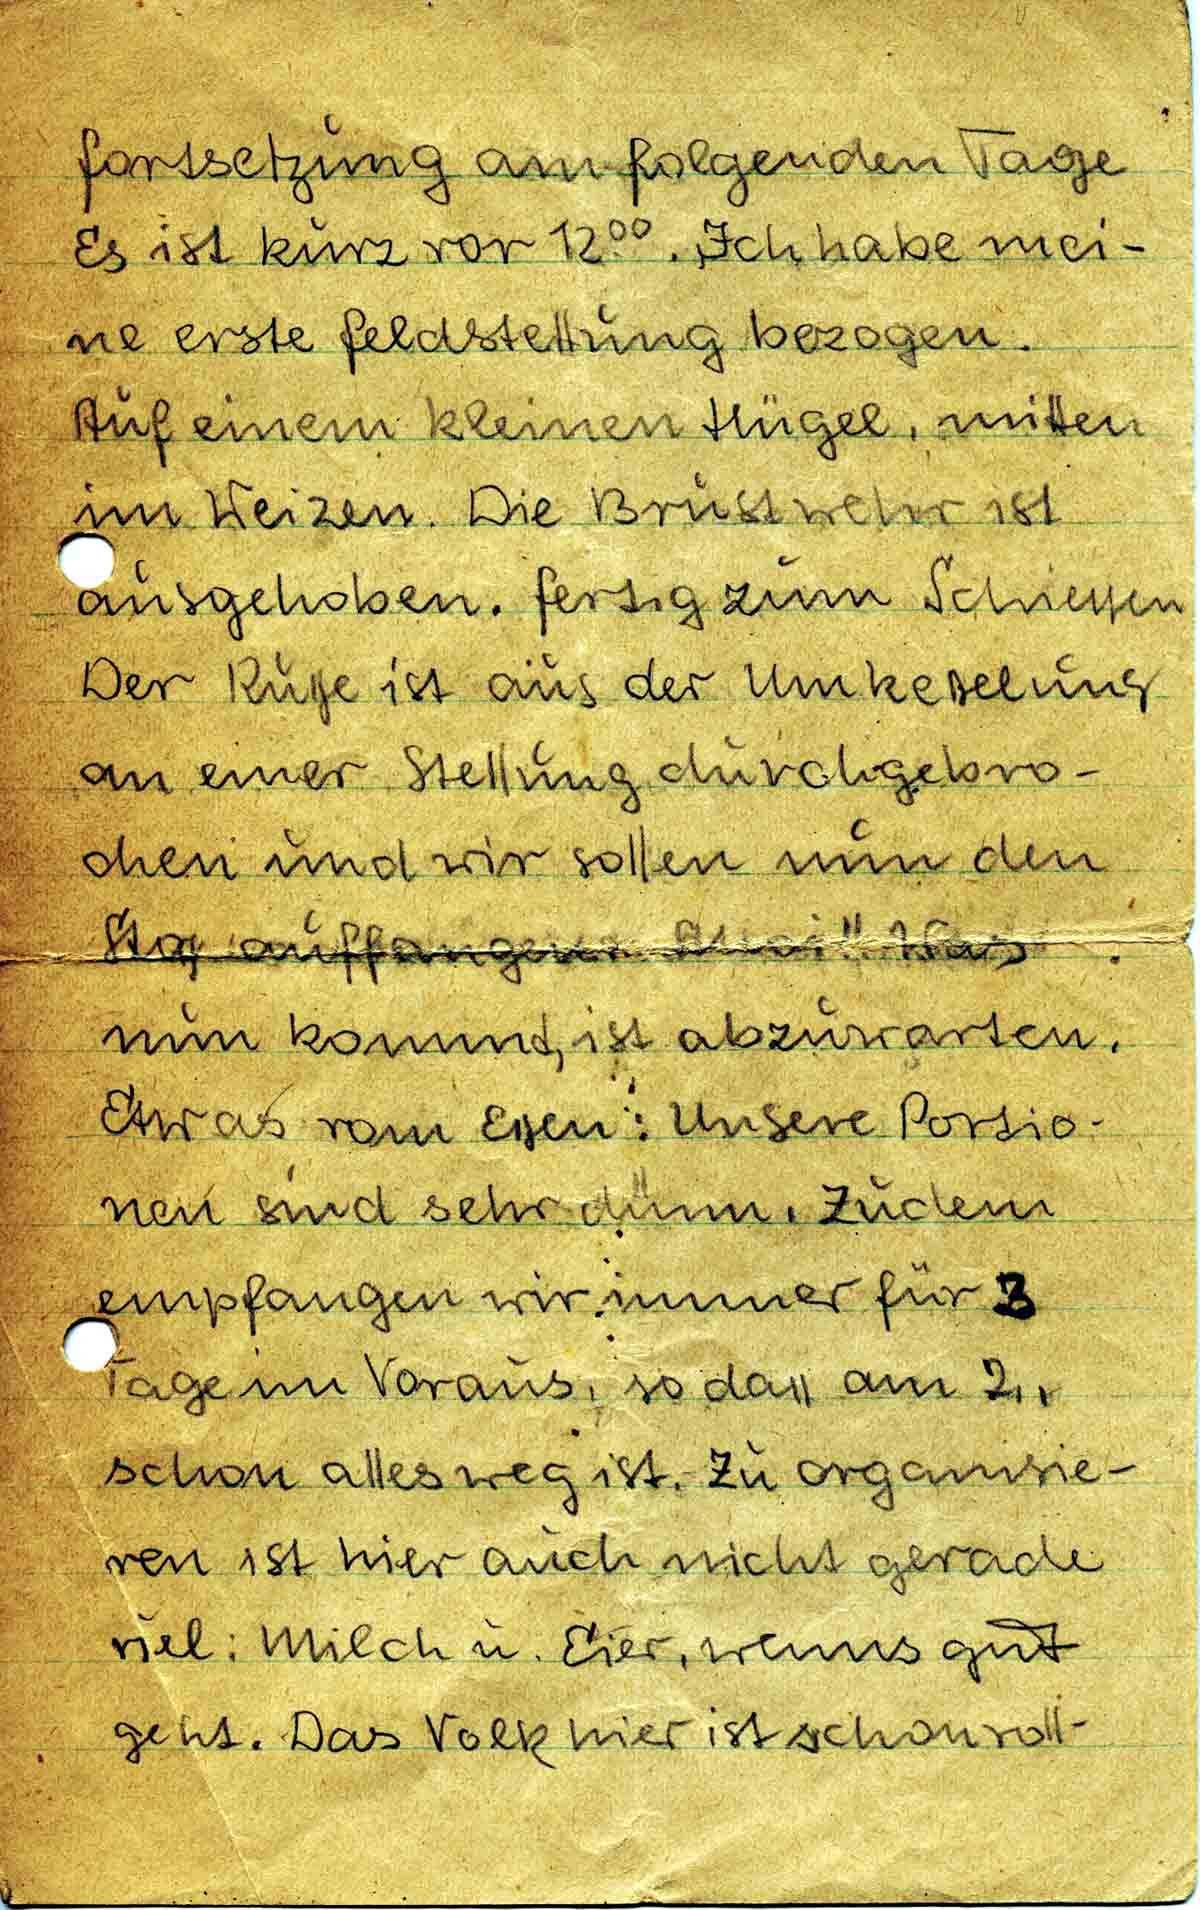 Fortsetzung am folgenden Tage
Es ist kurz vor 12⁰⁰. Ich habe mei-
ne erste Feldstellung bezogen.
Auf einem kleinen Hügel, mitten
im Weizen. Die Brustwehr ist
ausgehoben. Fertig zum Schießen
Der Ruße ist aus der Umkesselung
an einer Stellung durchgebro-
chen und wir sollen nun den
auffangen. Was
nun kommt, ist abzuwarten.
Etwas vom Eßen: Unsere Portio-
nen sind sehr dünn. Zudem
empfangen wir immer für 3
Tage im Voraus, so daß am 2.
schon alles weg ist. Zu organisie-
ren ist hier auch nicht gerade
viel: Milch u. Eier, wenns gut
geht. Das Volk hier ist schon voll-